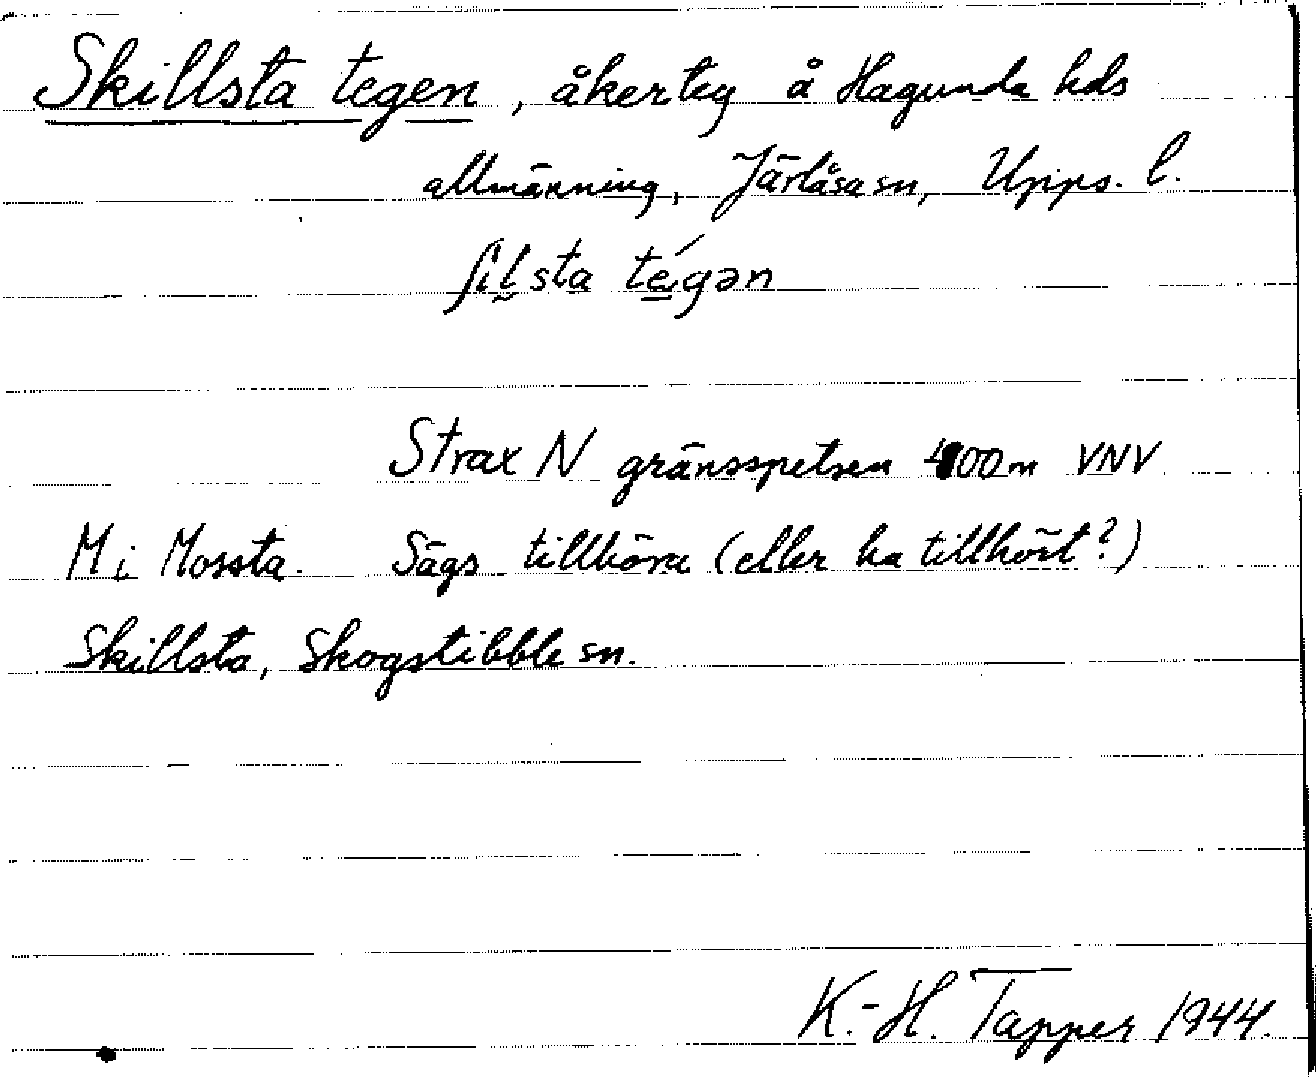 Skillsta tegen, åkerteg å Hagunda hds
allmänning, Järlåsa sn, Upps. l.
ʃil̰sta té̱gən
Strax N gränsspetsen 400 m VNV
M i Mossta. Sägs tillhöra (eller ha tillhört?)
Skillsta, Skogstibble sn.
K.-H. Tapper 1944.